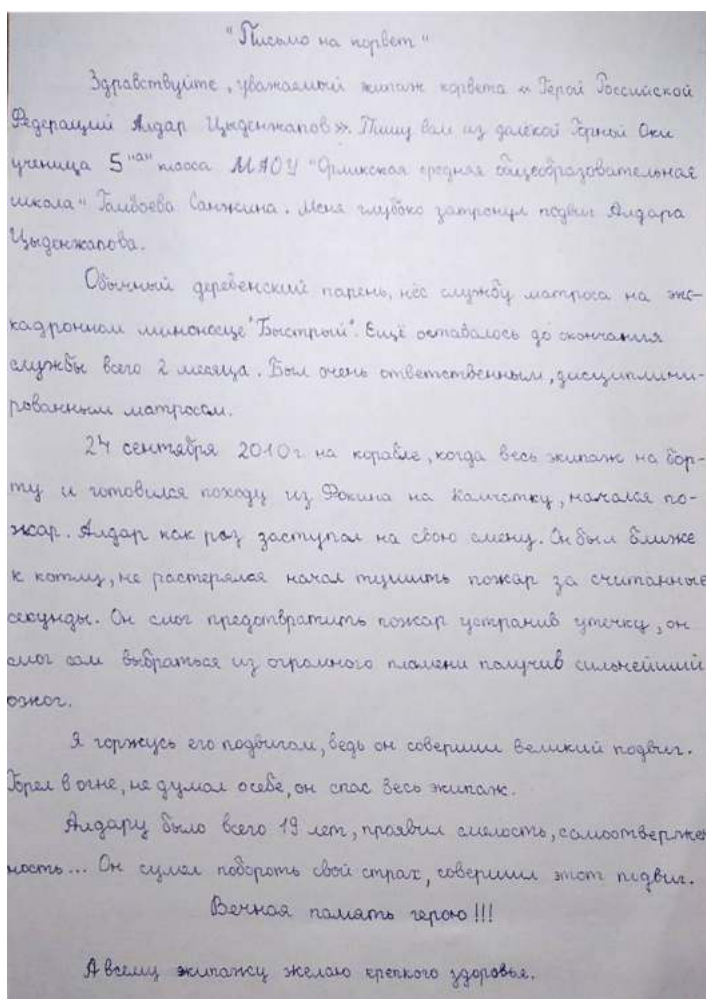 "Письмо на корвет"
Здравствуйте, уважаемый экипаж корвета «Герой Российской
Федерации Алдар Цыденжапов». Пишу вам из далёкой Горной Оки
ученица 5 "а" класса МАОУ "Орликская средняя общеобразовательная
школа" Самжина. Меня глубоко затронул подвиг Алдара
Цыденжапова.
Обычный деревенский парень, нёс службу матроса на эс-
кадронном миноносце "Быстрый". Ещё оставалось до окончания
службы всего 2 месяца. Был очень ответственным, дисциплини-
рованным матросом.
24 сентября 2010г на корабле, когда весь экипаж на бор-
ту и готовился походу из Фокина на Камчатку, начался по-
жар. Алдар как раз заступал на свою смену. Он был ближе
к котлу, не растерялся начал тушить пожар за считанные
секунды. Он смог предотвратить пожар устранив утечку, он
смог сам выбраться из огромного пламени получив сильнейший
ожог.
Я горжусь его подвигом, ведь он совершил великий подвиг.
Горел в огне, не думал о себе, он спас весь экипаж.
Алдару было всего 19 лет, проявил смелость, самоотвержен
ность... Он сумел побороть свой страх, совершил этот подвиг.
Вечная память герою!!!
А всему экипажу желаю крепкого здоровья.